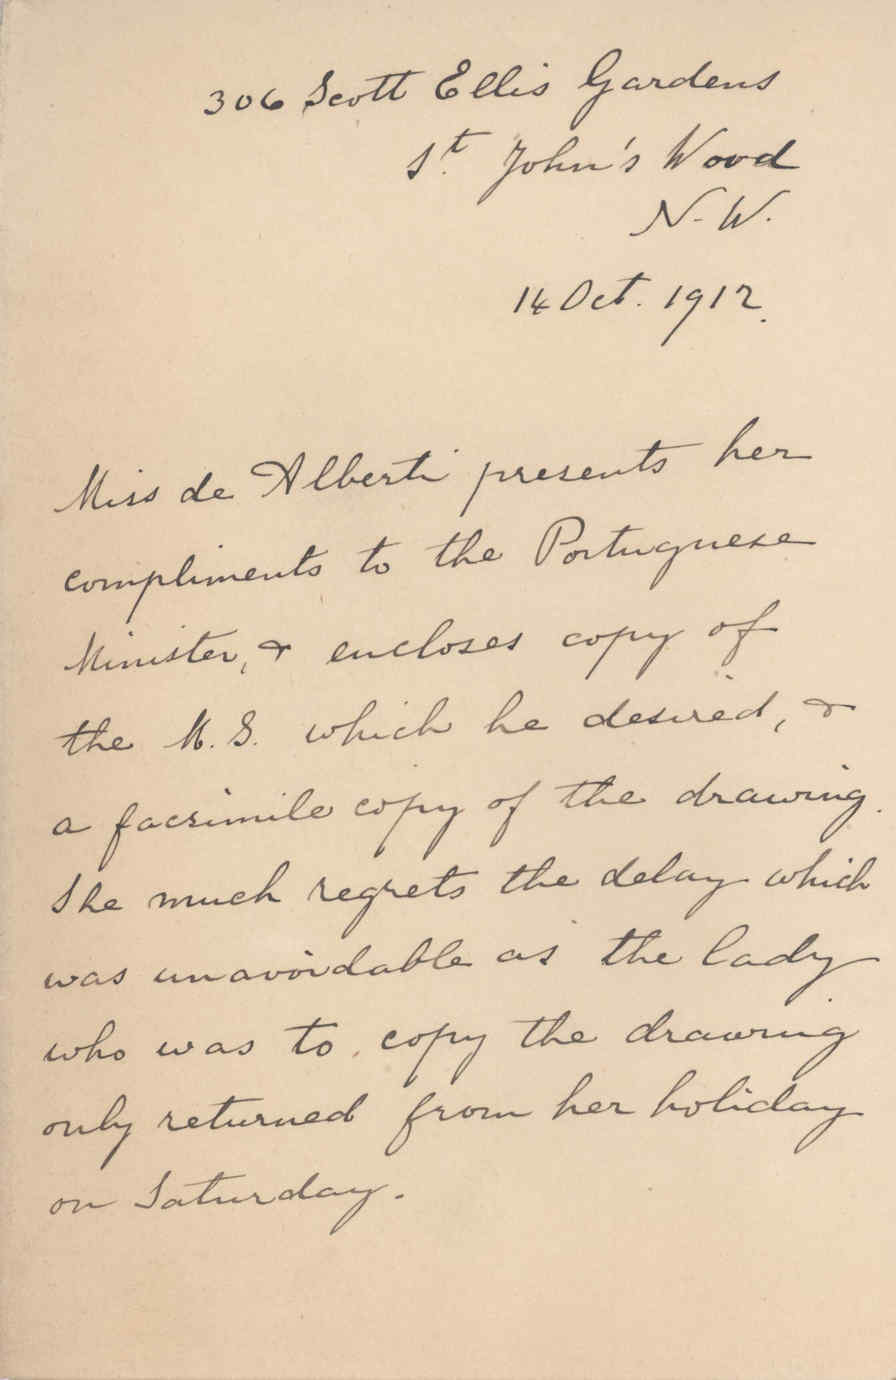 306 Scott Ellis Gardens
St. John's Wood
N.W.
14 Oct. 1912.
Miss de Alberti presents her
compliments to the Portuguese
Minister, & encloses copy of
the M.S. which he desired, &
a facsimile copy of the drawing.
She much regrets the delay which
was unavoidable as the lady
who was to copy the drawing
only returned from her holiday
on Saturday.